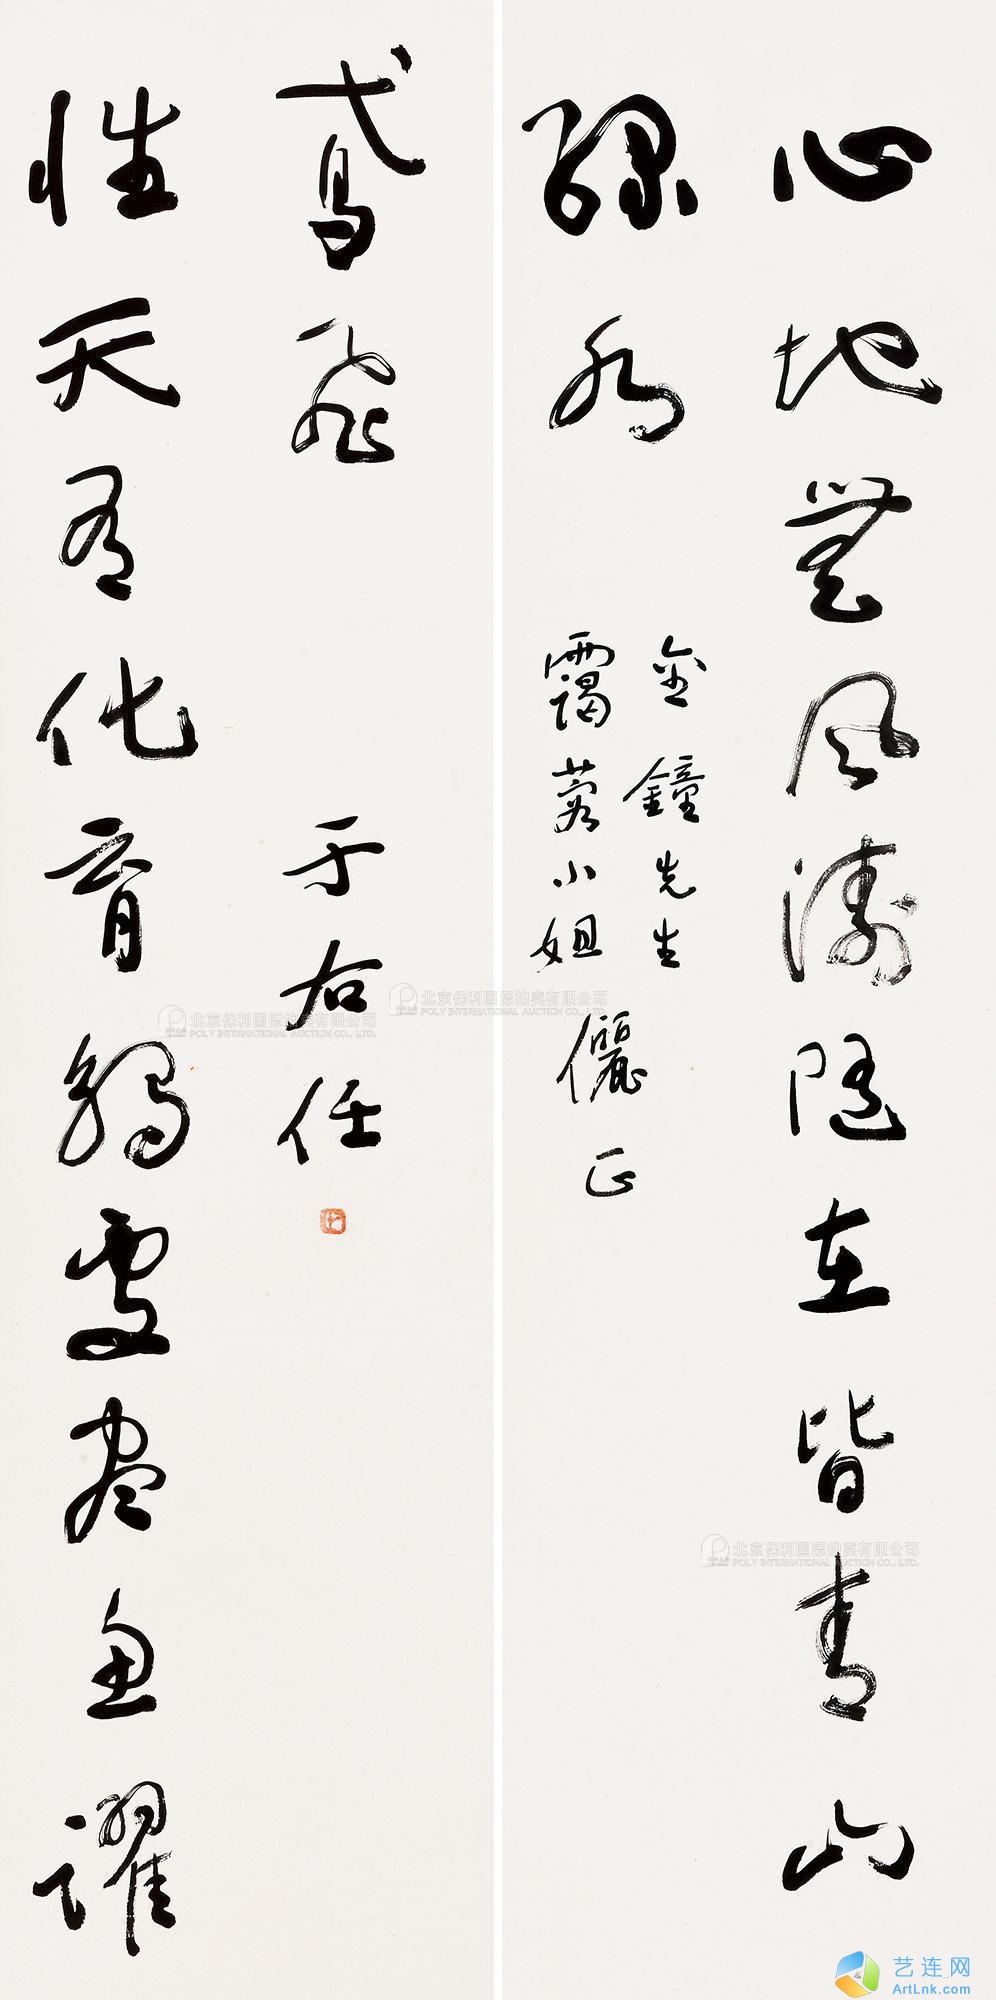 心地無風濤隨在皆青山
綠水
金鐘先生
靄蓉小姐
儷正
性天有化育觸處盡魚躍
鳶飛
于右任
北京保利国际拍卖有限公司
POLY INTERNATIONAL AUCTION CO., LTD.
北京保利国际拍卖有限公司
POLY INTERNATIONAL AUCTION CO., LTD.
北京保利国际拍卖有限公司
POLY INTERNATIONAL AUCTION CO., LTD.
艺连网
ArtLnk.com